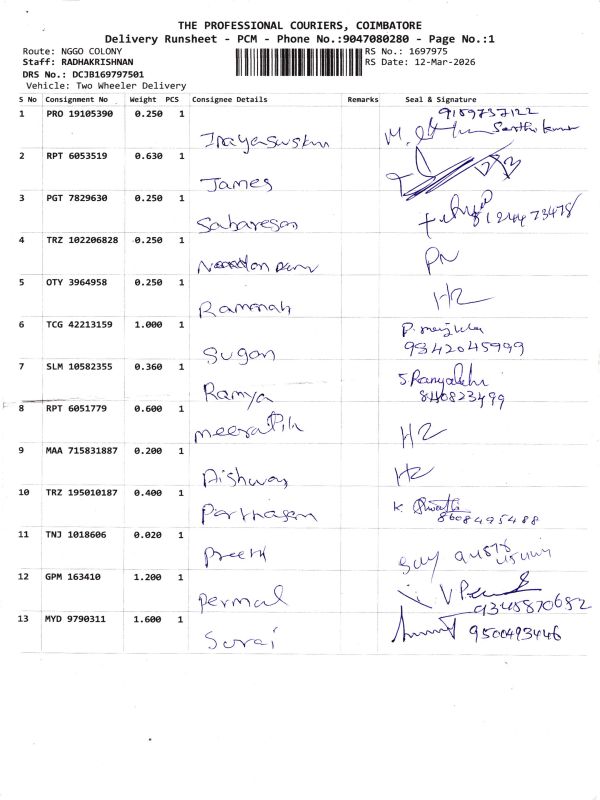 THE PROFESSIONAL COURIERS, COIMBATORE
Delivery Runsheet - PCM - Phone No.:9047080280 - Page No.:1
Route: NGGO COLONY RS No.: 1697975
Staff: RADHAKRISHNAN RS Date: 12-Mar-2026
DRS No.: DCJB169797501
Vehicle: Two Wheeler Delivery
S No Consignment No Weight PCS Consignee Details Remarks Seal & Signature
1 PRO 19105390 0.250 1 9159737122
2 RPT 6053519 0.630 1
James
3 PGT 7829630 0.250 1
4 TRZ 102206828 0.250 1 PN
5 OTY 3964958 0.250 1 H2
6 TCG 42213159 1.000 1
Sugan 9342045999
7 SLM 10582355 0.360 1
Ramya 840823499
8 RPT 6051779 0.600 1
H2
9 MAA 715831887 0.200 1
H2
10 TRZ 195010187 0.400 1 K
8608495488
11 TNJ 1018606 0.020 1
12 GPM 163410 1.200 1
Permal 9345870652
13 MYD 9790311 1.600 1
9500493446